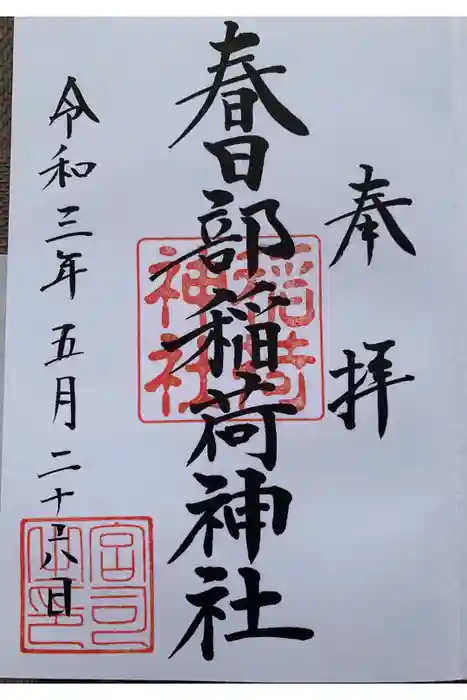 奉拝
春日部稲荷神社
稲荷
神社
令和三年五月二十六日
宮司
之印